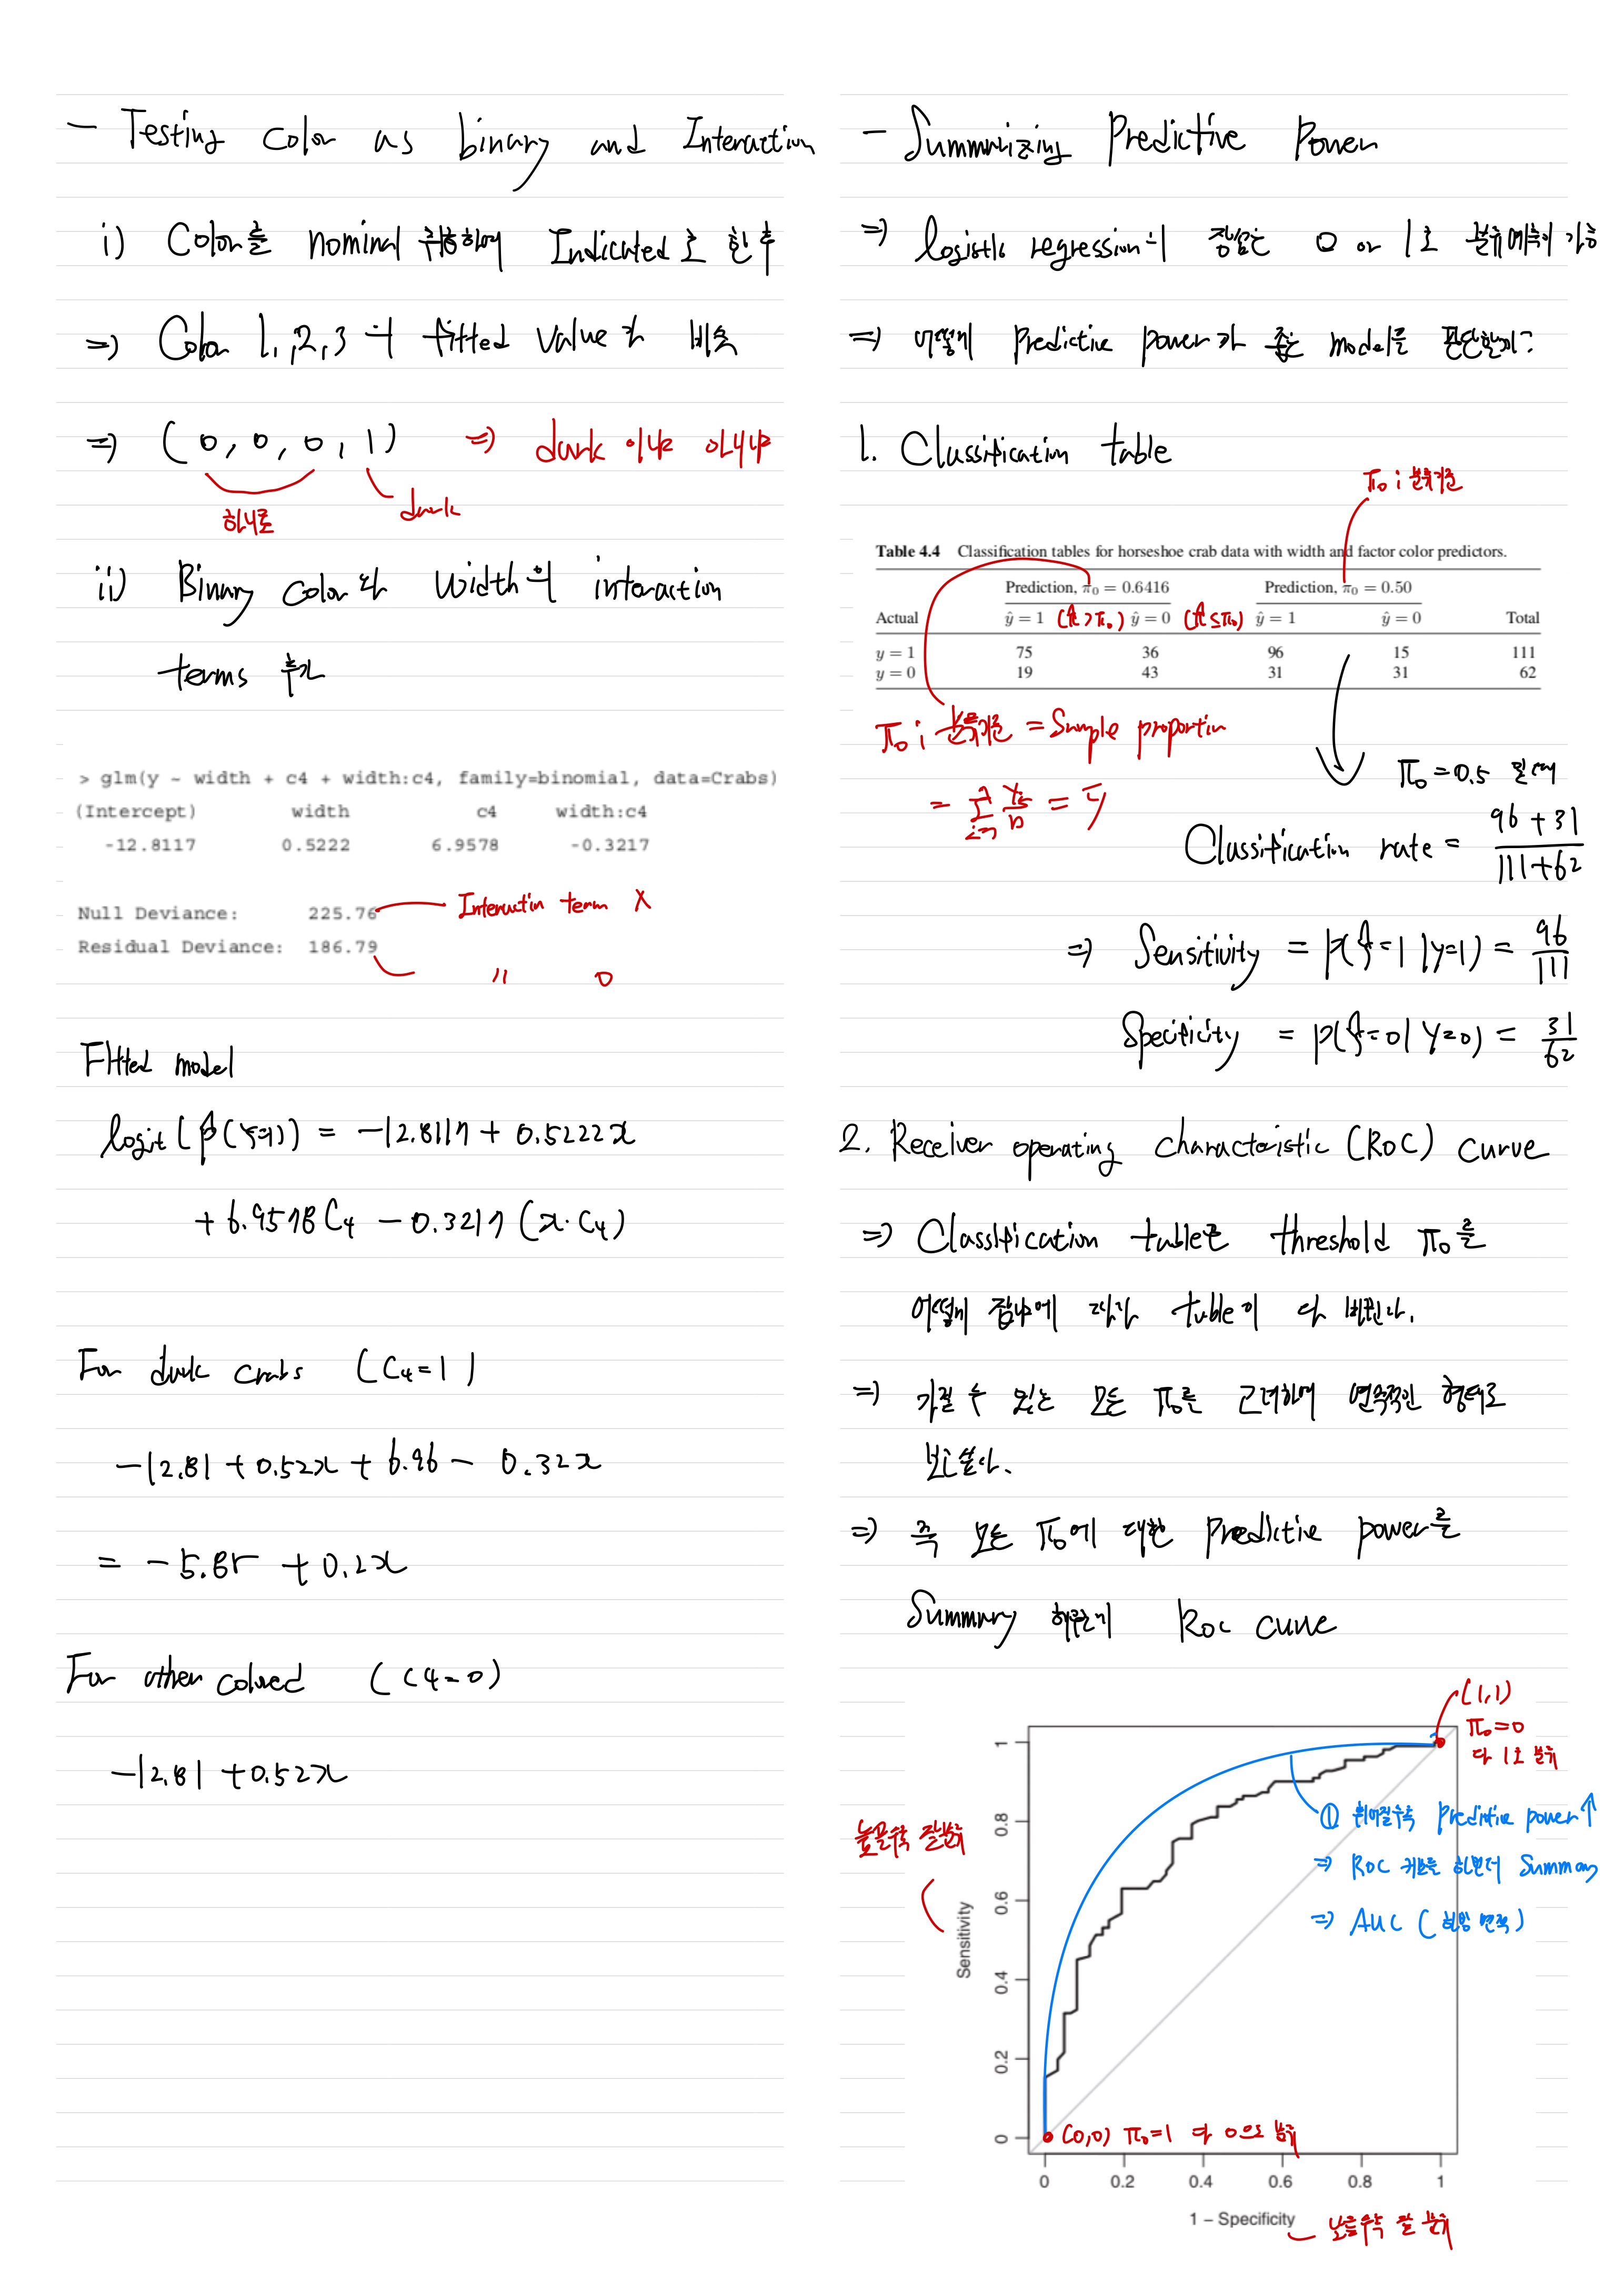 - Testing Color as binary and Interaction
i) Color를 nominal 취급하여 Indicated로 한 후
⇒ Color 1,2,3의 fitted value가 비슷
⇒ (0, 0, 0, 1) ⇒ dark 이냐 아니냐
하나로 dark
ii) Binary Color와 width의 interaction
terms 추가
> glm(y ~ width + c4 + width:c4, family=binomial, data=Crabs)
(Intercept) width c4 width:c4
-12.8117 0.5222 6.9578 -0.3217
Null Deviance: 225.76 Interaction term X
Residual Deviance: 186.79
〃 O
Fitted model
logit (p̂(Y=1)) = -12.8117 + 0.5222x
+ 6.9578 C4 - 0.3217 (x·C4)
For dark crabs (C4=1)
-12.81 + 0.52x + 6.96 - 0.32x
= -5.85 + 0.2x
For other colored (C4=0)
-12.81 + 0.52x
- Summarizing Predictive Power
⇒ logistic regression의 장점은 0 or 1로 분류예측이 가능
⇒ 어떻게 Predictive power가 좋은 model를 판단할지?
1. Classification table
π0 ; 분류기준
Table 4.4 Classification tables for horseshoe crab data with width and factor color predictors.
Prediction, π0 = 0.6416 Prediction, π0 = 0.50
Actual ŷ = 1 (π̂>π0) ŷ = 0 (π̂≤π0) ŷ = 1 ŷ = 0 Total
y = 1 75 36 96 15 111
y = 0 19 43 31 31 62
π0 ; 분류기준 = Sample proportin
= Σ Yi/n = ȳ
π0 = 0.5 일때
Classification rate = (96+31)/(111+62)
⇒ Sensitivity = P(ŷ=1 | y=1) = 96/111
Specificity = P(ŷ=0 | y=0) = 31/62
2. Receiver operating characteristic (ROC) curve
⇒ Classification table은 threshold π0를
어떻게 잡냐에 따라 table이 다 바뀐다.
⇒ 가질 수 있는 모든 π0를 고려하여 연속적인 형태로
보고싶다.
⇒ 즉 모든 π0에 대한 Predictive power를
Summary 해준게 ROC curve
(1,1)
π0=0
다 1로 분류
① 휘어질수록 Predictive power↑
⇒ ROC 커브를 한번더 Summary
⇒ AUC (하방 면적)
높을수록 잘분류
Sensitivity
1
0.8
0.6
0.4
0.2
0
(0,0) π0=1 다 0으로 분류
0 0.2 0.4 0.6 0.8 1
1 − Specificity
낮을수록 잘 분류